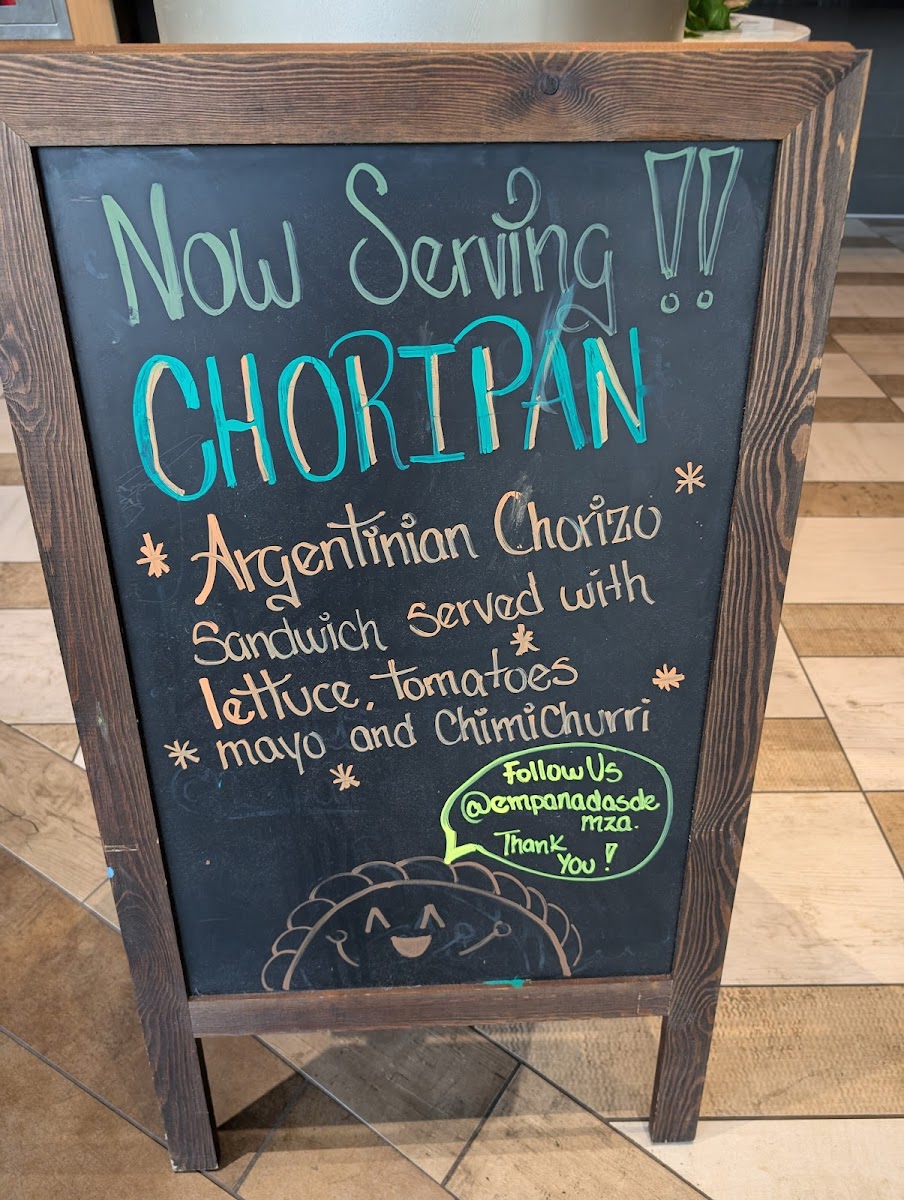 Now Serving !!
CHORIPAN
* Argentinian Chorizo *
Sandwich served with
lettuce, tomatoes *
* mayo and Chimichurri *
*
Follow Us
@empanadasde
mza.
Thank
You !